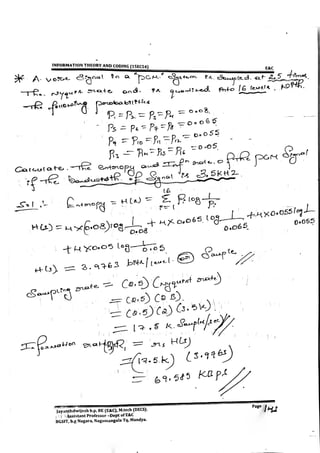 INFORMATION THEORY AND CODING (15EC54) E&C
* A voice signal in a "PCM" system is sampled at 2.5 times
The Nyquist rate and is quantized into 16 levels with
The following probabilities
P1 = P2 = P3 = P4 = 0.08.
P5 = P6 = P7 = P8 = 0.065
P9 = P10 = P11 = P12 = 0.055
P13 = P14 = P15 = P16 = 0.05.
Calculate The Entropy and Infn rate of the PCM Signal
if The Bandwidth of Signal is 3.5kHz.
Sol :- Entropy = H(s) = 16 Σ i=1 Pi log 1/Pi
H(s) = 4×(0.08) log 1/0.08 + 4×0.065 log 1/0.065 + 4×0.055 log 1/0.055
+ 4×0.05 log 1/0.05
H(s) = 3.9763 bits/level (or) Sample
Sampling rate = (2.5) (Nyquist rate)
= (2.5) (2B)
= (2.5) (2) (3.5k)
= 17.5 k Samples/sec
Information rate R = rs H(s)
= (17.5k) (3.9763)
= 69.585 KBps
Jayanthdwijesh h.p, BE (E&C), M.tech (DECS).
Assistant Professor -Dept of E&C
BGSIT, b.g Nagara, Nagamangala Tq, Mandya.
Page